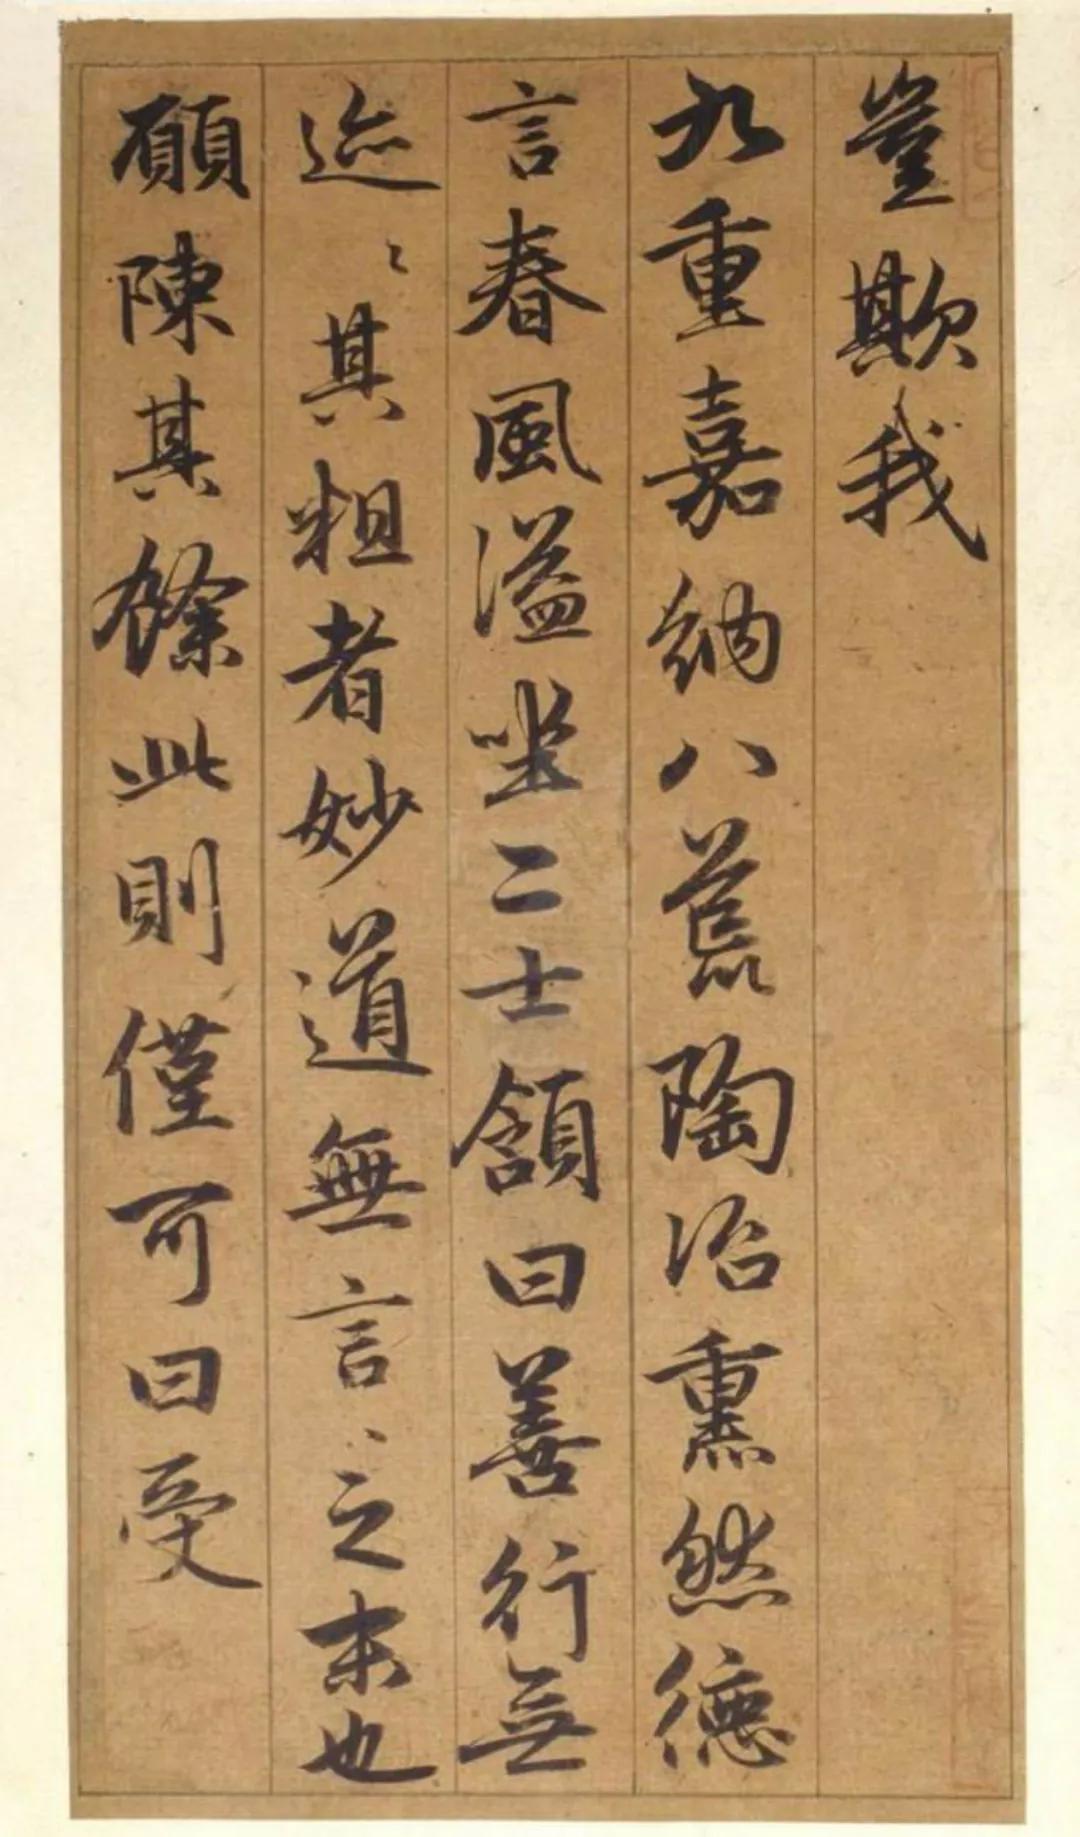 豈欺我
九重嘉納八荒陶冶熏然德
言春風溢坐二士頷曰善行無
迹〻其粗者妙道無言〻之末也
願陳其餘此則僅可曰受